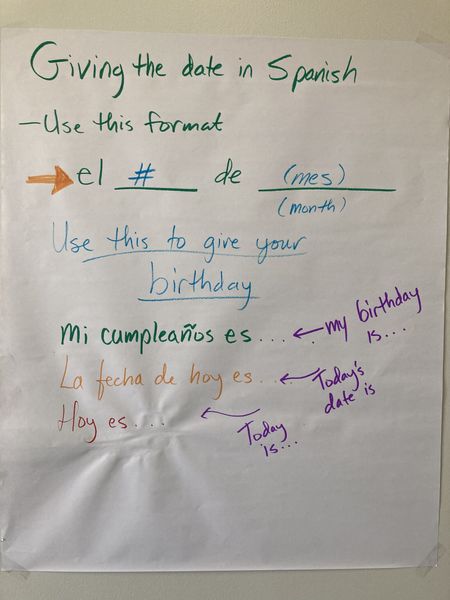 Giving the date in Spanish
- Use this format
→ el # de (mes)
(month)
Use this to give your
birthday
Mi cumpleaños es... ← my birthday is...
La fecha de hoy es.. ← Today's date is
Hoy es... ← Today is...